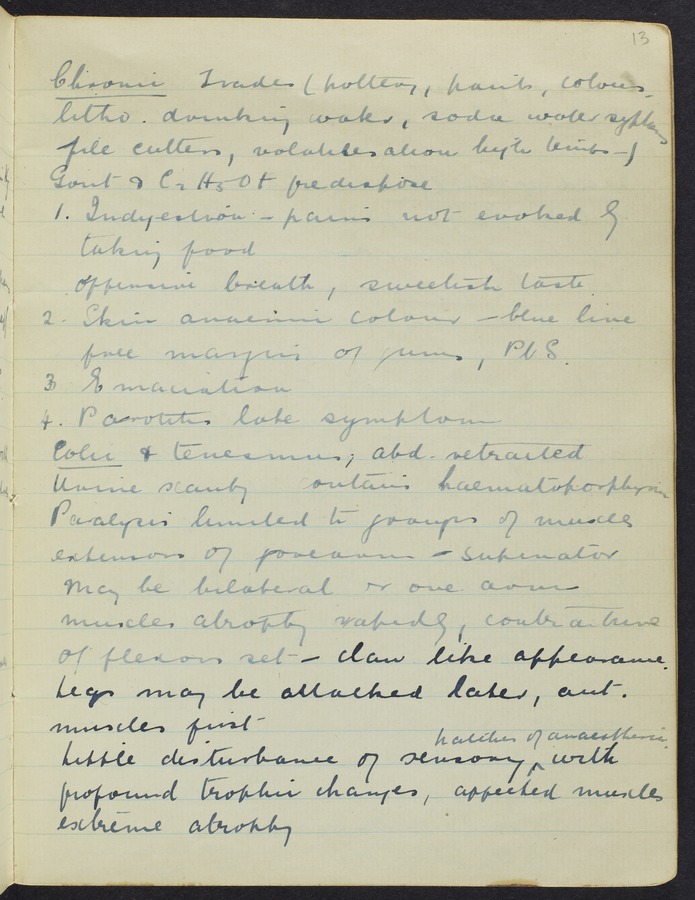 13
Chronic Trades (pottery, paints, colours
litho. drinking water, soda water syphons
file cutters, volatilisation high temps-)
Gout & C2H5OH predispose
1. Indigestion - pains not evoked by
taking food
offensive breath, sweetish taste.
2. Skin anaemic colour - blue line
free margins of gums, PbS.
3 Emaciation
4. Parotitis late symptom
Colic & tenesmus; abd. retracted
Urine scanty contains haematoporphyrin
Paralysis limited to groups of muscles
extensors of forearm - supinator
May be bilateral or one arm
muscles atrophy rapidly, contracture
of flexors set - claw like appearance.
Legs may be attacked later, ant.
muscles first
patches of anaesthesia.
Little disturbance of sensory, with
profound trophic changes, affected muscles
extreme atrophy